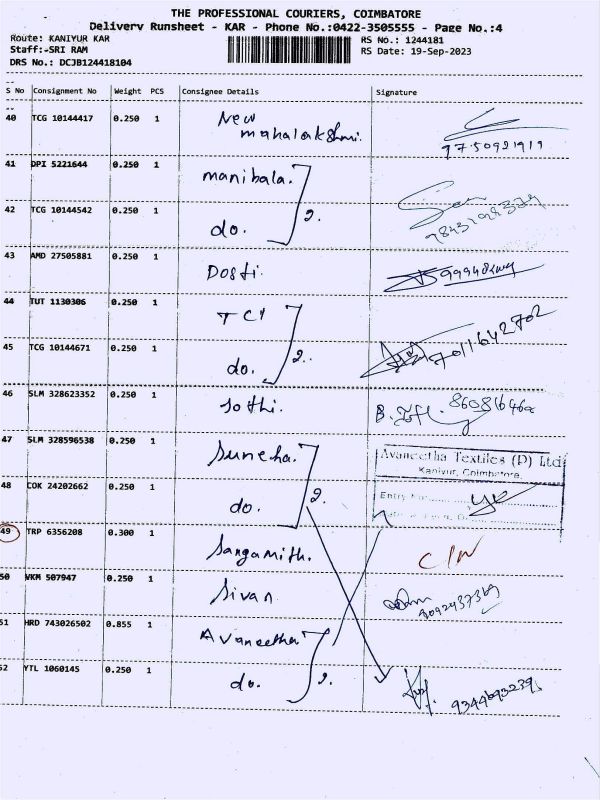 THE PROFESSIONAL COURIERS, COIMBATORE
Delivery Runsheet - KAR - Phone No.:0422-3505555 - Page No.:4
Route: KANIYUR KAR
RS No.: 1244181
Staff:-SRI RAM
RS Date: 19-Sep-2023
DRS No.: DCJB124418104
S No Consignment No Weight PCS Consignee Details Signature
40 TCG 10144417 0.250 1 New mahalakshmi.
41 DPI 5221644 0.250 1 manibala.
42 TCG 10144542 0.250 1 do. 2.
43 AMD 27505881 0.250 1 Dosti.
44 TUT 1130306 0.250 1 TCI
45 TCG 10144671 0.250 1 do. 2. 7011642702
46 SLM 328623352 0.250 1 Jothi.
47 SLM 328596538 0.250 1 Suneha. Avaneetha Textiles (P) Ltd
Kaniyur, Coimbatore.
48 COK 24202662 0.250 1 do. 2. Entry No.
49 TRP 6356208 0.300 1 Sangamith. C/N
50 VKM 507947 0.250 1 Sivan
51 HRD 743026502 0.855 1 Avaneetha
52 YTL 1060145 0.250 1 do. 2. 9344693239